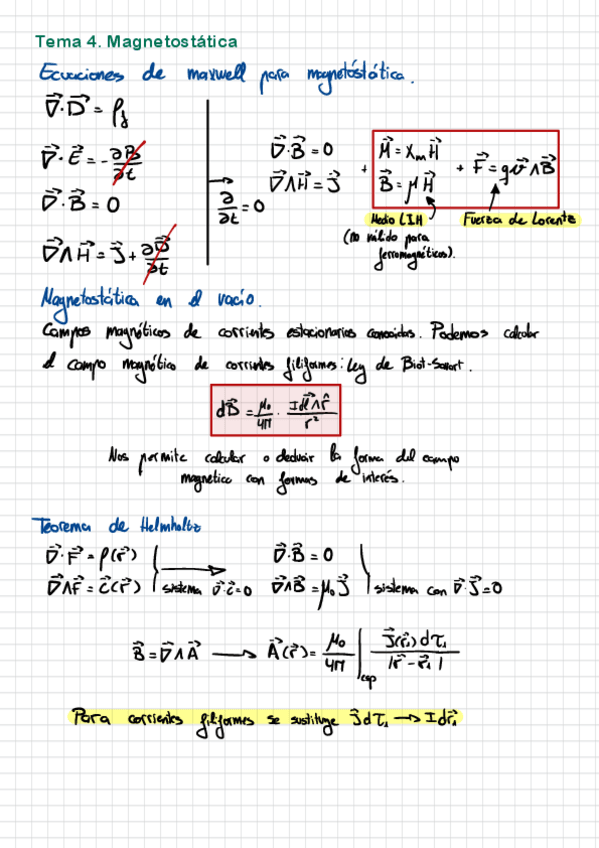 Tema 4. Magnetostática
Ecuaciones de maxwell para magnetóstática.
∇⃗·D⃗ = ρf
∇⃗·E⃗ = -∂B⃗/∂t
∇⃗·B⃗ = 0
∇⃗∧H⃗ = J⃗ + ∂D⃗/∂t
→ ∂/∂t = 0
∇⃗·B⃗ = 0
∇⃗∧H⃗ = J⃗
+ M⃗ = χm H⃗
B⃗ = μ H⃗
+ F⃗ = q v⃗ ∧ B⃗
Medio LIH
(no válido para
ferromagnéticos).
Fuerza de Lorentz
Magnetostática en el vacío.
Campos magnéticos de corrientes estacionarias conocidas. Podemos calcular
el campo magnético de corrientes filiformes: ley de Biot-Savart.
dB⃗ = μ0/4π · I dl⃗ ∧ r̂ / r²
Nos permite calcular o deducir la forma del campo
magnetico con formas de interés.
Teorema de Helmholtz
∇⃗·F⃗ = ρ(r⃗)
∇⃗∧F⃗ = c⃗(r⃗)
sistema ∇⃗·c⃗=0
∇⃗·B⃗ = 0
∇⃗∧B⃗ = μ0 J⃗
sistema con ∇⃗·J⃗ = 0
B⃗ = ∇⃗∧A⃗ → A⃗(r⃗) = μ0/4π ∫cap J⃗(r⃗1) dτ1 / |r⃗ - r⃗1|
Para corrientes filiformes se sustituye J⃗dτ1 → I dr⃗1